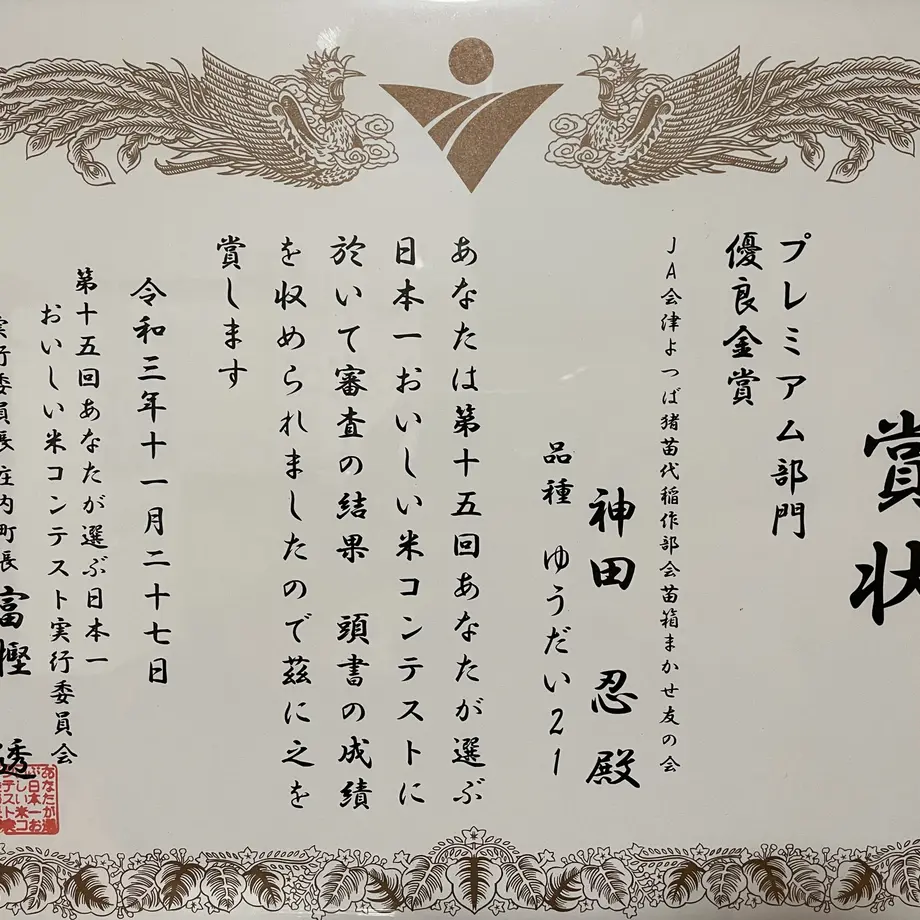 賞状
プレミアム部門
優良金賞
JA会津よつば猪苗代稲作部会苗箱まかせ友の会
神田 忍 殿
品種 ゆうだい21
あなたは第十五回あなたが選ぶ
日本一おいしい米コンテストに
於いて審査の結果 頭書の成績
を収められましたので茲に之を
賞します
令和三年十一月二十七日
第十五回あなたが選ぶ日本一
おいしい米コンテスト実行委員会
実行委員長庄内町長 富樫 透